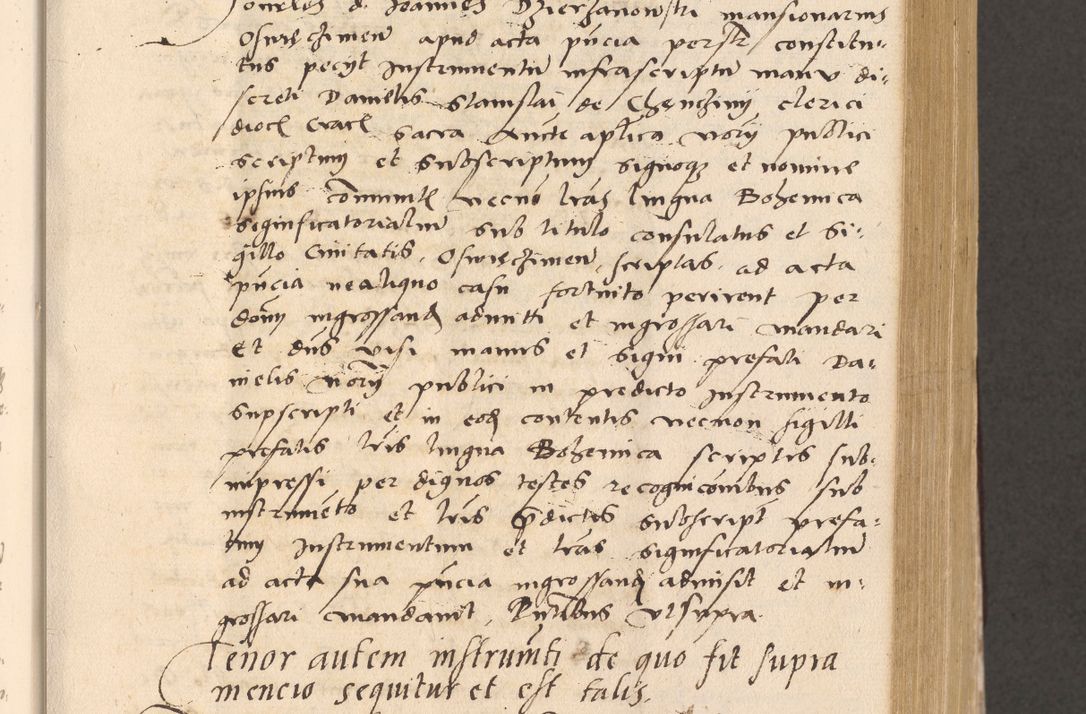 d. Joannes Dzierzanowski mansionarius
Oswięczimen apud acta pñcia perstr constitu-
tus pecyt Instrumentũ infrascriptũ manu di-
screti Danielis Stanislai de Chencziny clerici
dioc̃ Crac̃ sacra aucte aplica norij publici
scriptum et subscriptum signoqʒ et nomine
ipsius com̃unit̃ necnõ lras lingua Bohemica
significatorialiũ sub titulo consulatus et si-
gillo Civitatis Oswięczimen scriptas ad acta
pñcia ne aliquo casu fortuito perirent per
dom̃ ingrossand̃ admitti et ingrossari mandari
Et dñs visi manus et signi prefati Da-
nielis norij publici in predicto Instrumento
supscripti et in eod̃ contentis necnon sigilli
prefatis lris lingua Bohemica scriptis sub-
impressi per dignos testes recognicõnibus sub
instrumẽto et lris p̃dictis subscript prefa-
tum Instrumentum et lras significatorialiũ
ad acta sua pñcia ingrossand̃ admisit et in-
grossari mandavit, Pñtibus ut supra.
Tenor autem instrum̃ti de quo fit supra
mencio sequitur et est talis.